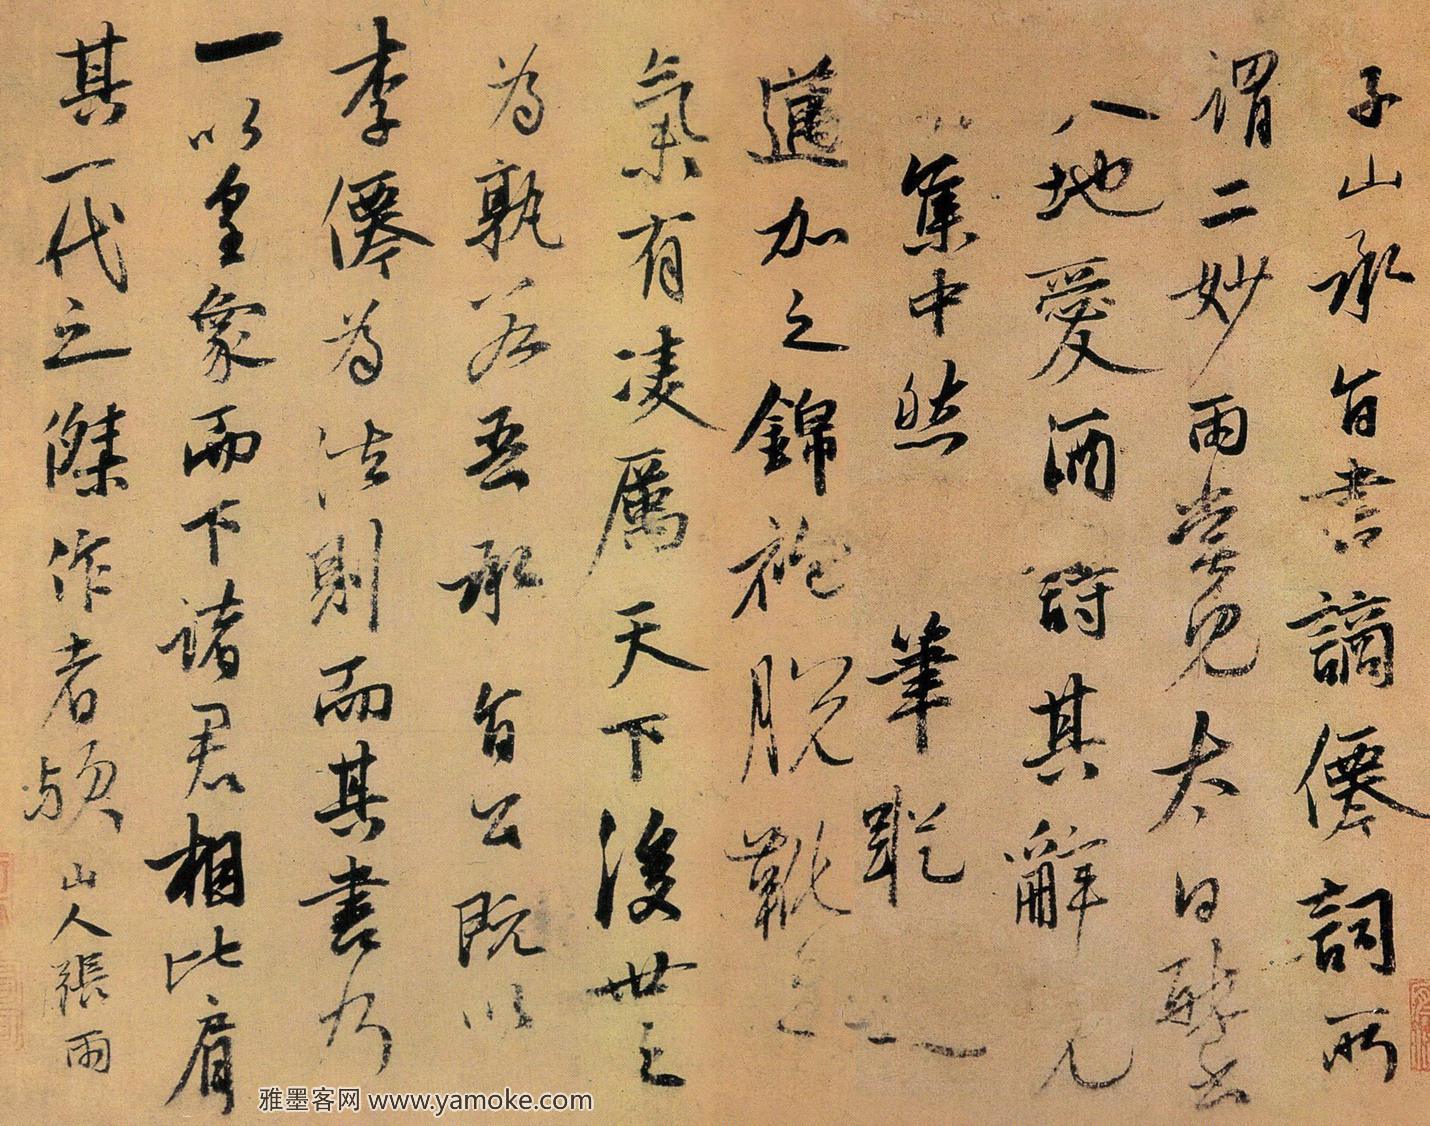 子山承旨書謫僊詞所
謂二妙雨嘗見太白醉書
八地愛酒詩其辭見
集中然筆蹤
邁加之錦袍脫靴之
氣有凌厲天下後世之
為孰若吾承旨公既以
李僊為法則而其書乃
一以皇象而下諸君相比肩
其一代之傑作者歟
山人張雨
雅墨客网 www.yamoke.com